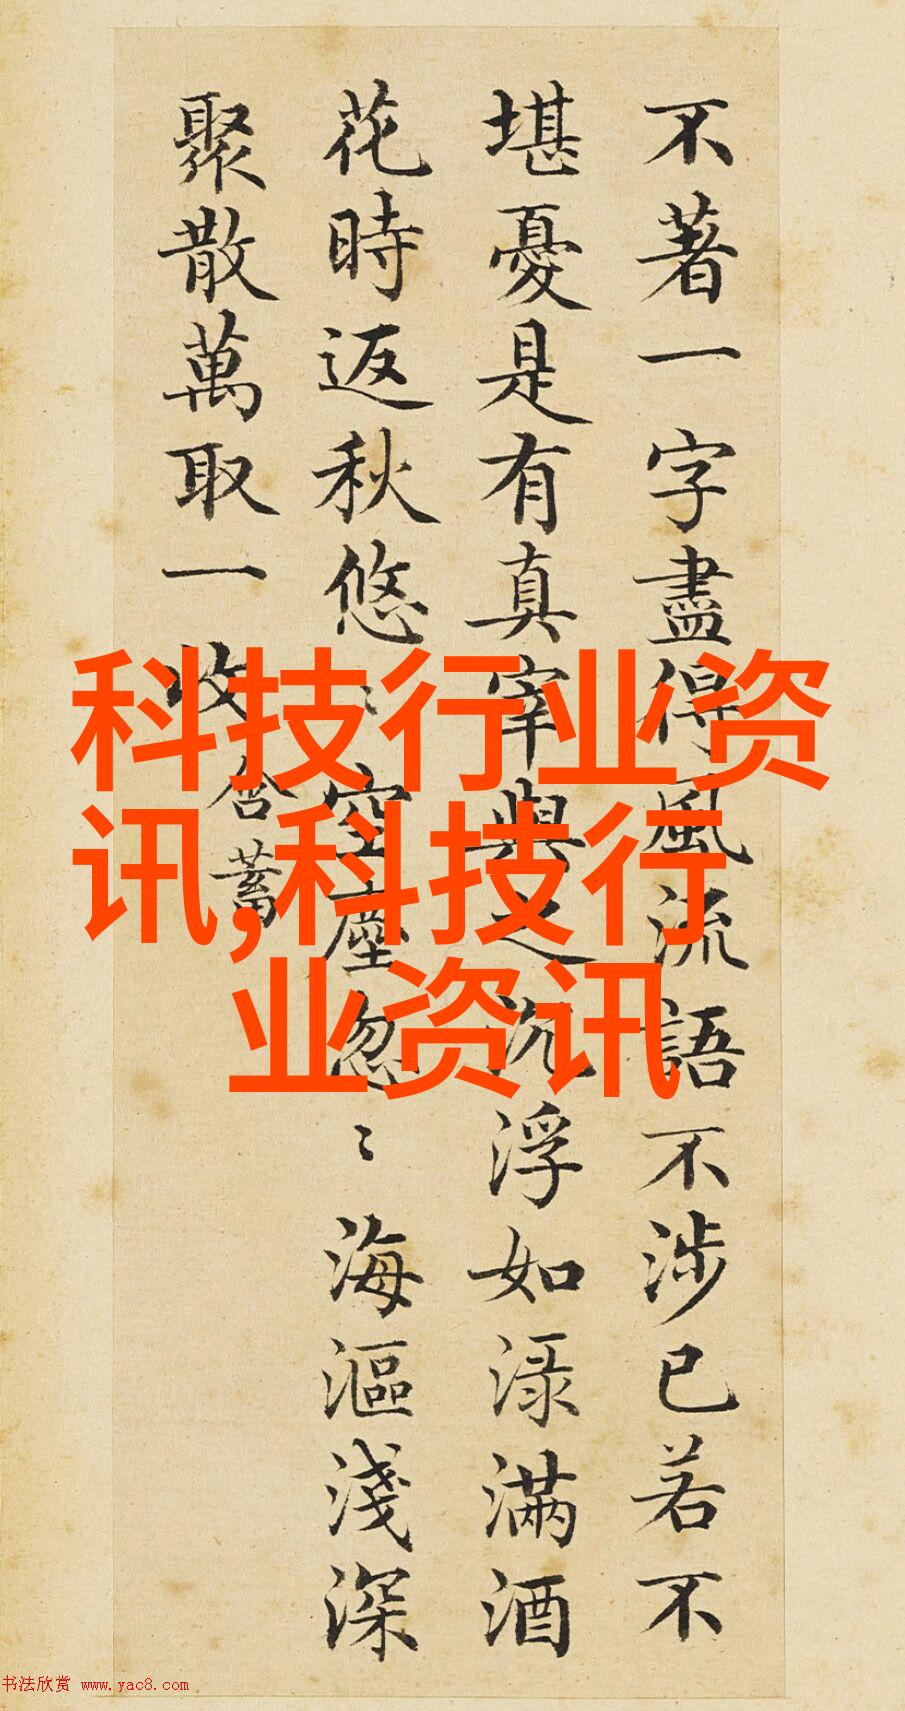 不著一字盡得風流語不涉已若不
堪憂是有真宰與之沉浮如渌滿酒
花時返秋悠〻空塵忽〻海漚淺深
聚散萬取一收
含蓄
科技行业资
讯,科技行
业资讯
书法欣赏 www.yac8.com